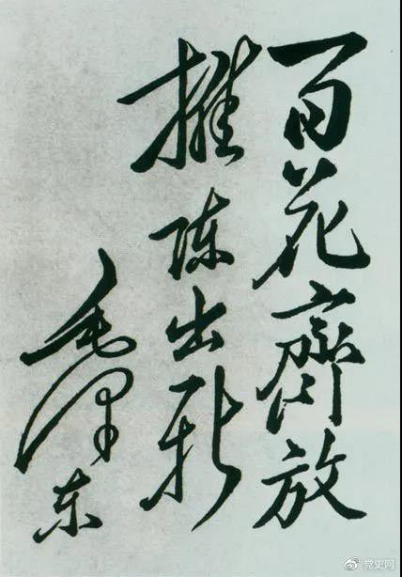 百花齐放
推陈出新
毛泽东
党史网